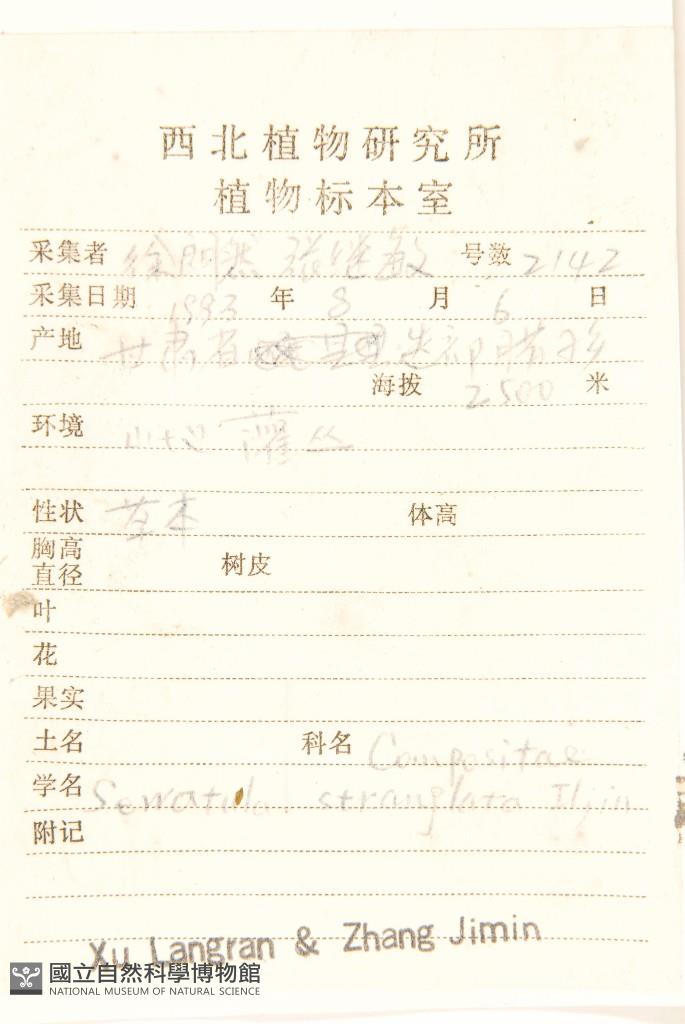 西北植物研究所
植物标本室
采集者 徐朗然 张继敏 号数 2142
采集日期 1993 年 8 月 6 日
产地 甘肃省 迭部腊子
海拔 2500 米
环境 山坡灌丛
性状 草本 体高
胸高直径 树皮
叶
花
果实
土名 科名 Compositae
学名 Serratula strangulata Iljin
附记
Xu Langran & Zhang Jimin
國立自然科學博物館
NATIONAL MUSEUM OF NATURAL SCIENCE